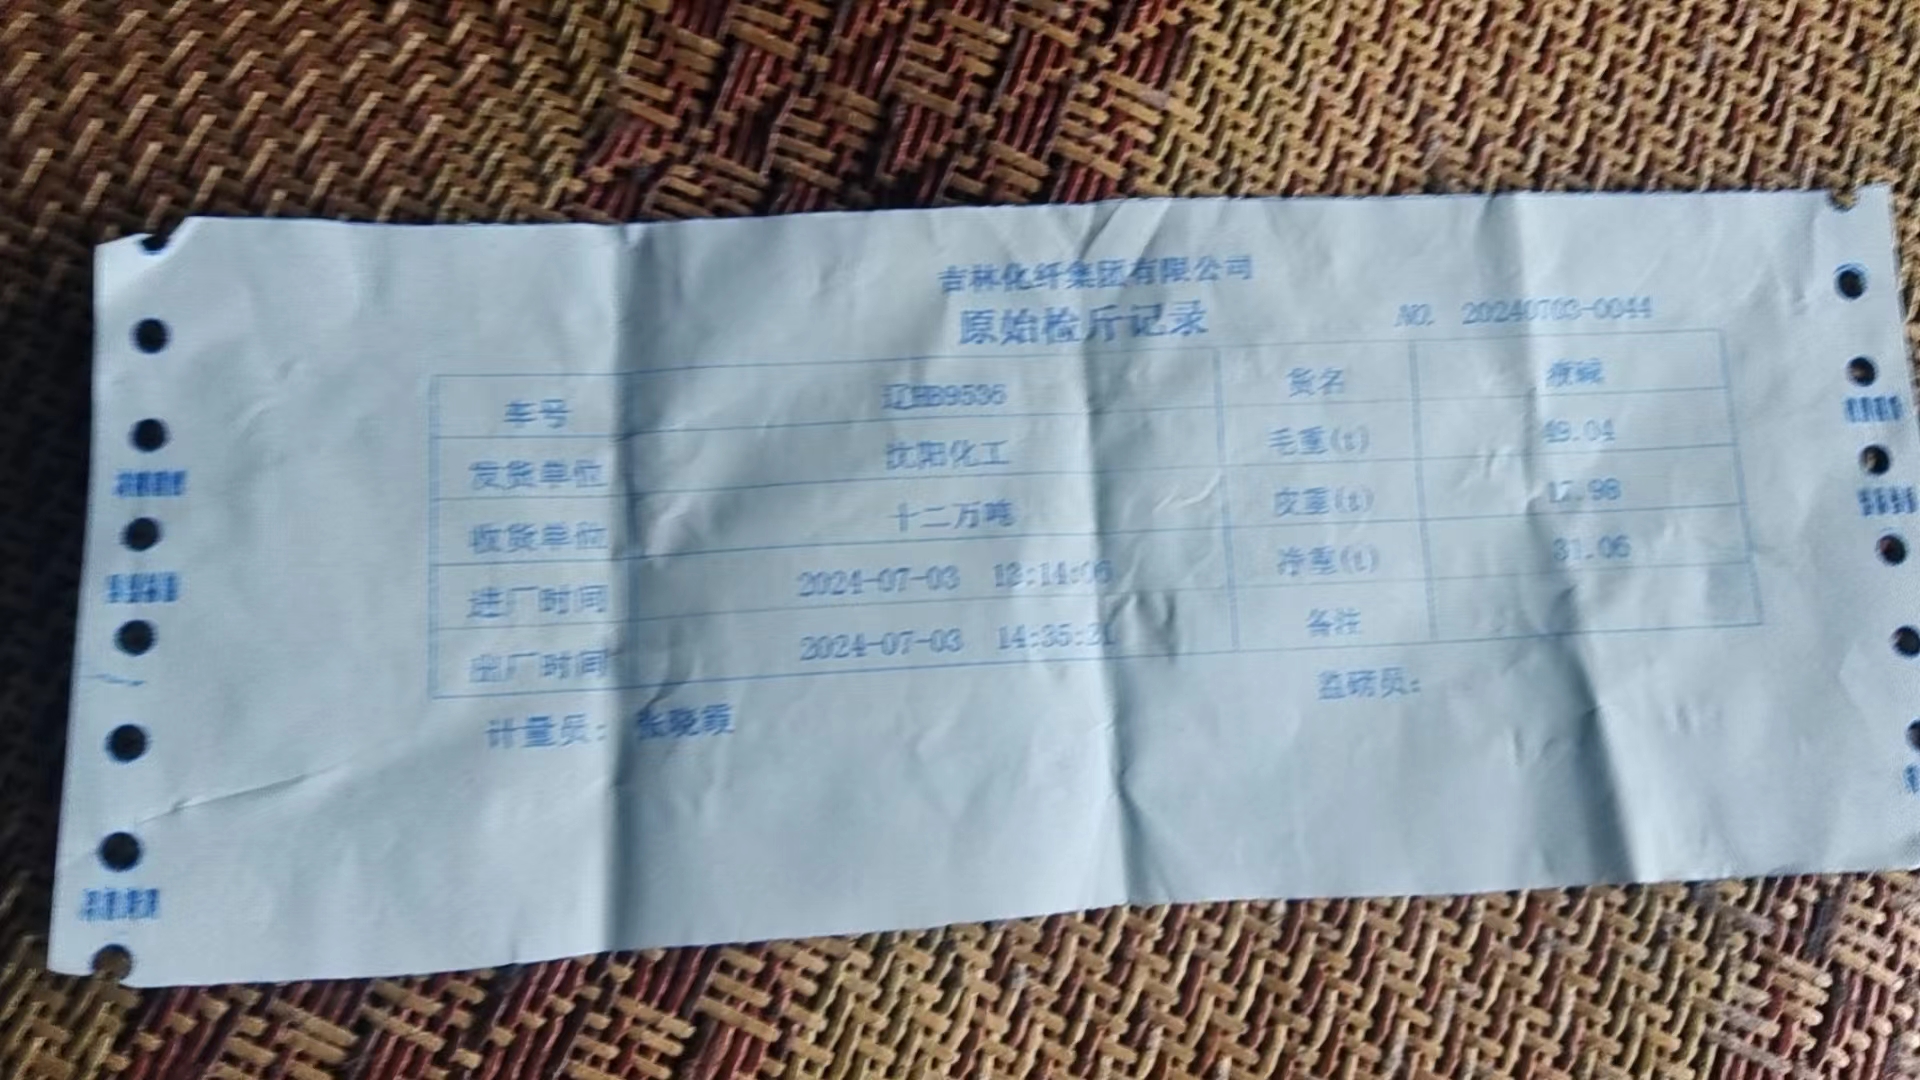 吉林化纤集团有限公司
原始检斤记录
NO. 20240703-0044
车号 辽HB9536 货名 液碱
发货单位 沈阳化工 毛重(t) 49.04
收货单位 十二万吨 皮重(t) 17.98
进厂时间 2024-07-03 13:14:06 净重(t) 31.06
出厂时间 2024-07-03 14:35:21 备注
计量员: 张晓霞 监磅员: